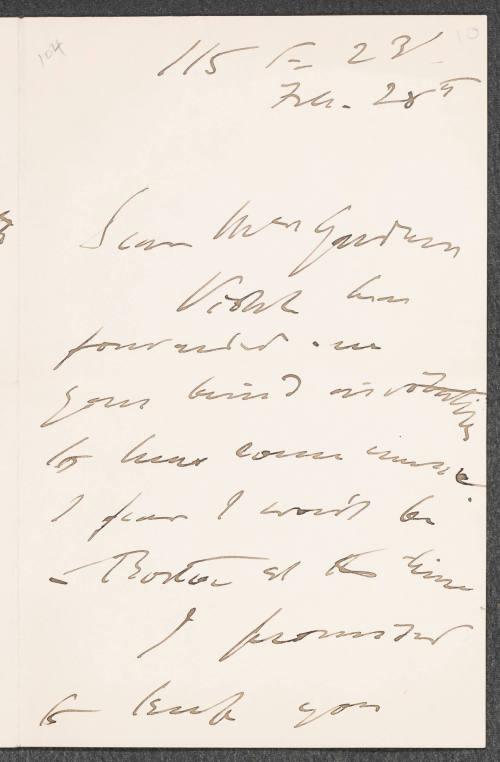 104
10
115 E 23d
Feb. 28th
Dear Mrs Gardner
Violet has
forwarded me
your kind invitation
to hear some music.
I fear I won't be
in Boston at the time.
I promised
to keep you